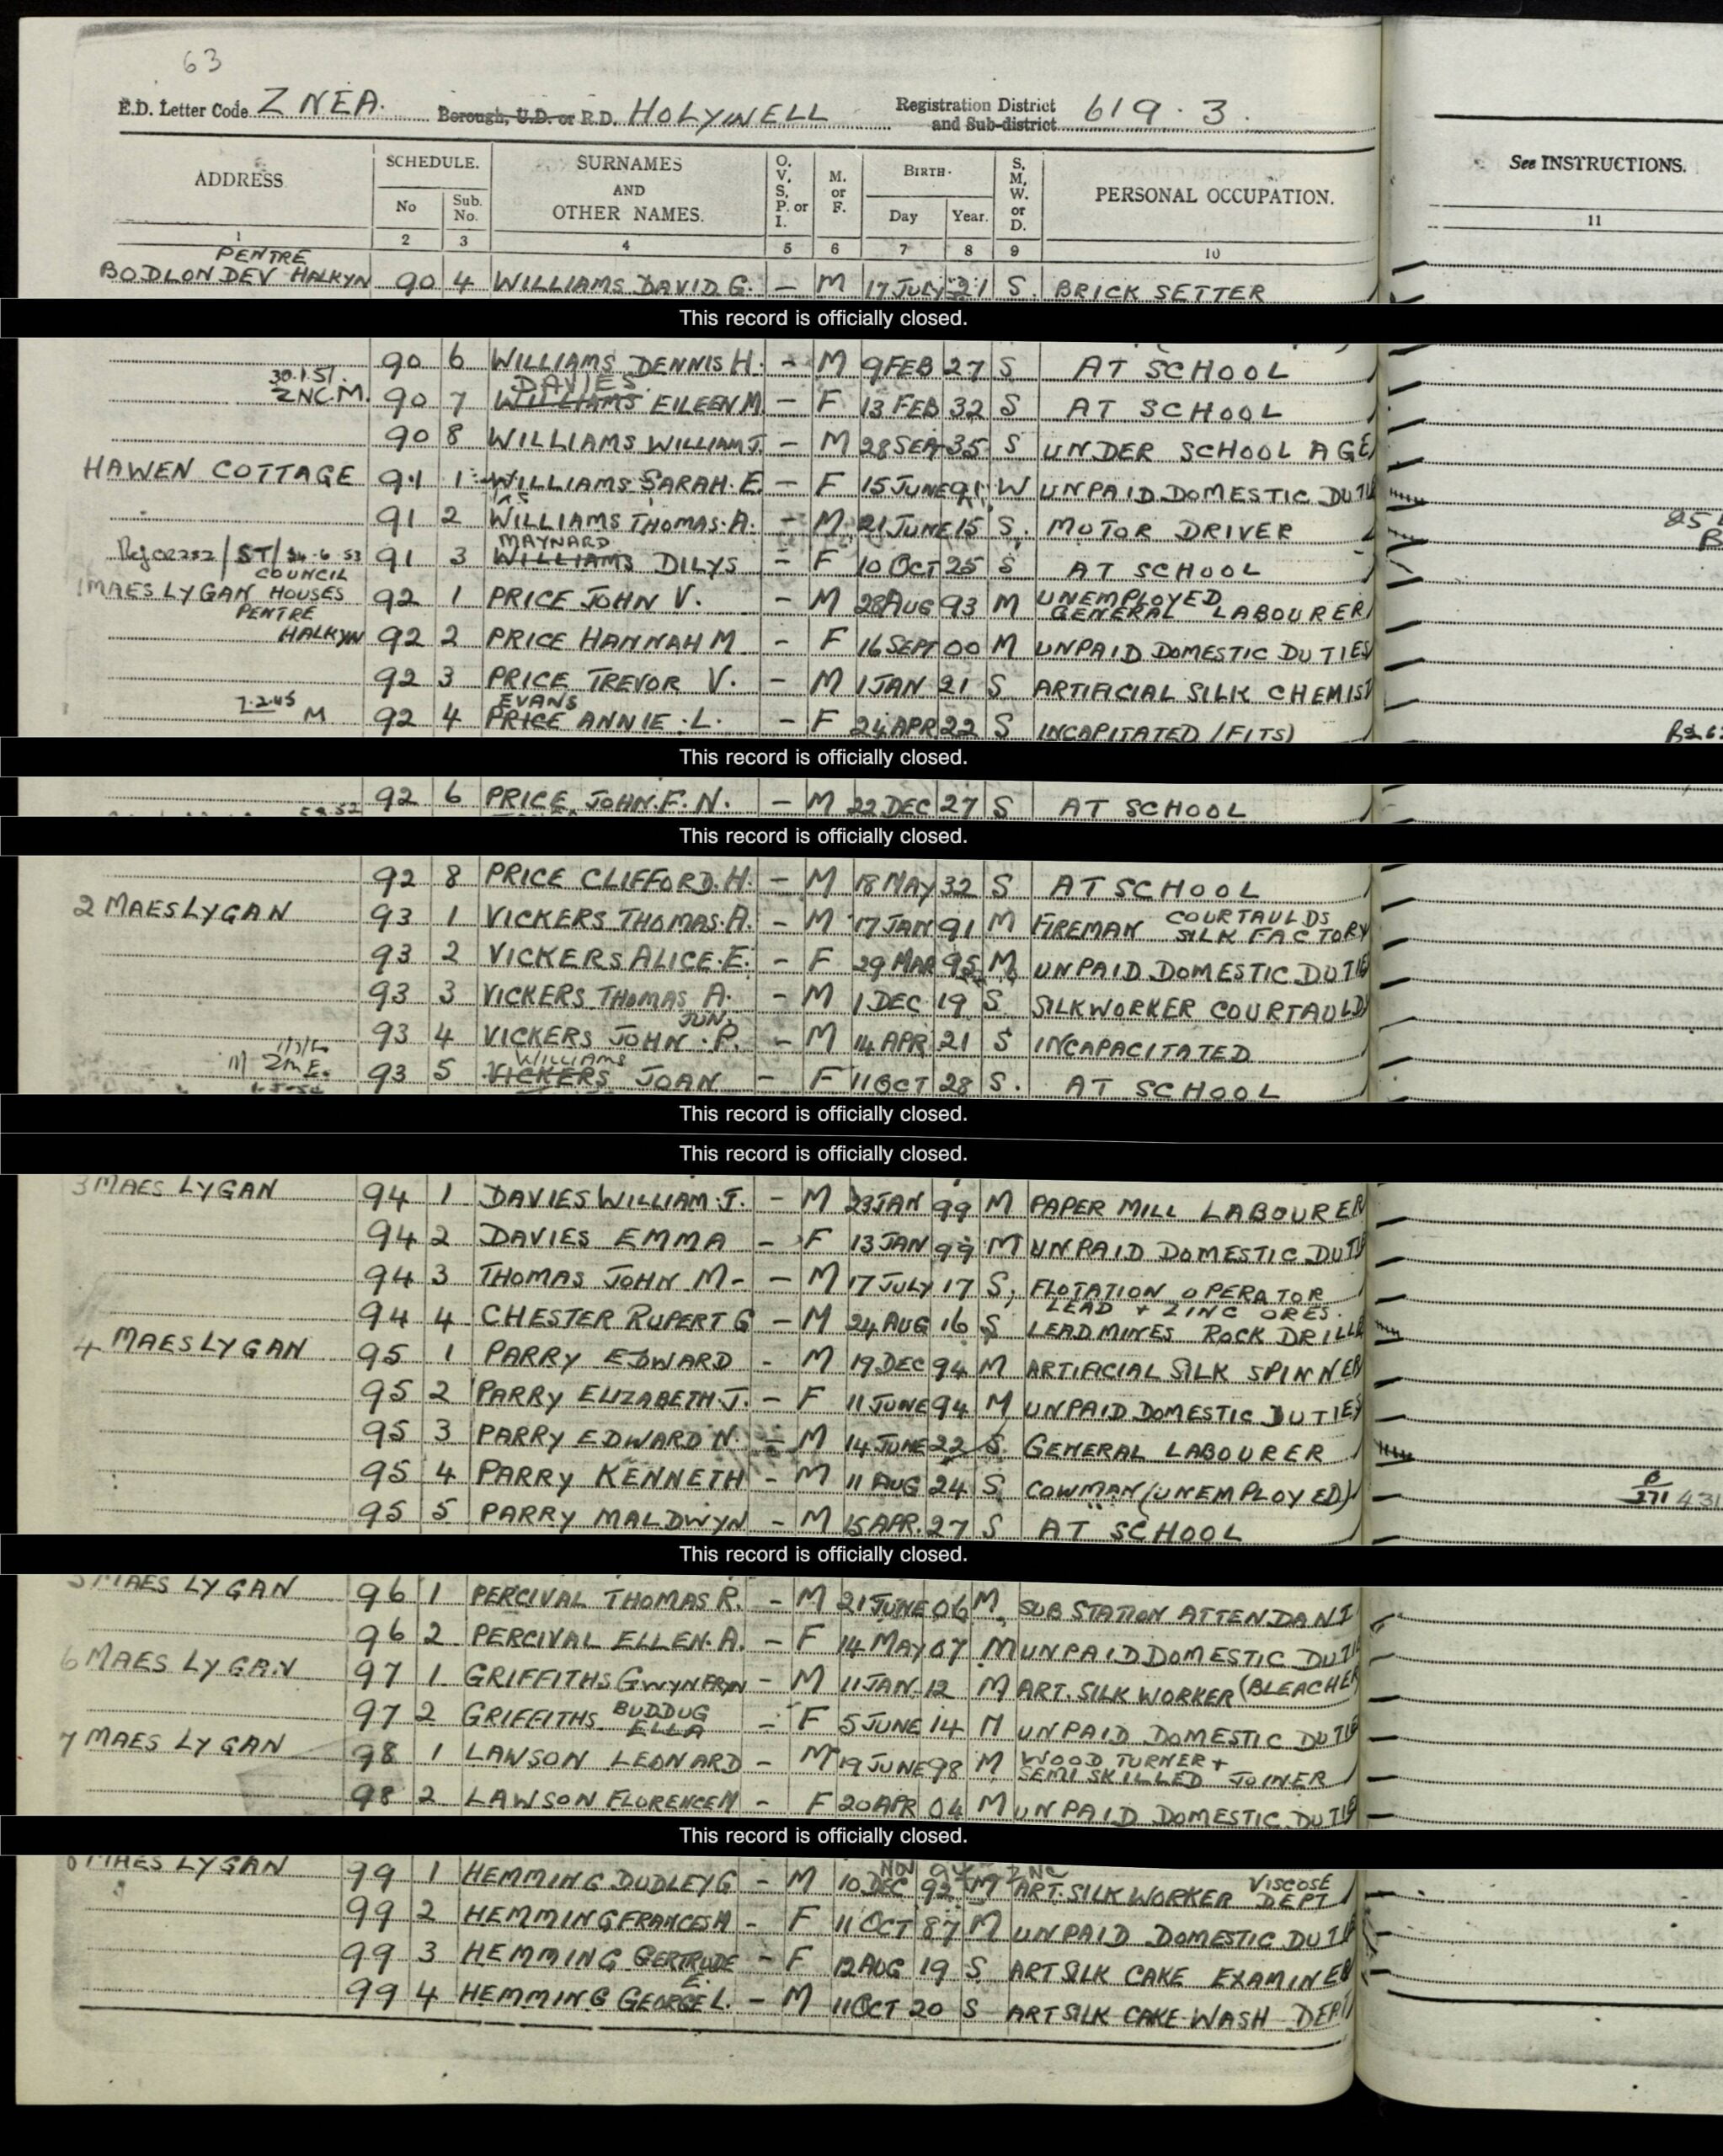 63
E.D. Letter Code Z NEA. Borough, U.D. or R.D. HOLYWELL Registration District and Sub-district 619.3.
ADDRESS SCHEDULE. No Sub. No. SURNAMES AND OTHER NAMES. O. V. S. P. or I. M. or F. BIRTH. Day Year. S, M, W. or D. PERSONAL OCCUPATION. See INSTRUCTIONS.
1 2 3 4 5 6 7 8 9 10 11
PENTRE
BODLONDEV HALKYN 90 4 WILLIAMS DAVID G. - M 17 JULY 21 S. BRICK SETTER
This record is officially closed.
90 6 WILLIAMS DENNIS H. - M 9 FEB 27 S AT SCHOOL
30.1.51. DAVIES
ZNC.M. 90 7 WILLIAMS EILEEN M - F 13 FEB 32 S AT SCHOOL
90 8 WILLIAMS WILLIAM J. - M 28 SEP 35 S UNDER SCHOOL AGE
HAWEN COTTAGE 91 1 WILLIAMS SARAH. E. - F 15 JUNE 91 W UNPAID DOMESTIC DUTIE
91 2 WILLIAMS THOMAS. A. - M 21 JUNE 15 S. MOTOR DRIVER
MAYNARD
91 3 WILLIAMS DILYS - F 10 OCT 25 S AT SCHOOL
COUNCIL
1 MAES LYGAN HOUSES 92 1 PRICE JOHN V. - M 28 AUG 93 M UNEMPLOYED GENERAL LABOURER
PENTRE
HALKYN 92 2 PRICE HANNAH M - F 16 SEPT 00 M UNPAID DOMESTIC DUTIES
92 3 PRICE TREVOR V. - M 1 JAN 21 S ARTIFICIAL SILK CHEMIST
EVANS
7.2.45 M 92 4 PRICE ANNIE. L. - F 24 APR 22 S INCAPITATED (FITS)
This record is officially closed.
92 6 PRICE JOHN. F. N. - M 22 DEC 27 S AT SCHOOL
This record is officially closed.
92 8 PRICE CLIFFORD. H. - M 18 MAY 32 S AT SCHOOL
2 MAES LYGAN 93 1 VICKERS THOMAS. A. - M 17 JAN 91 M FIREMAN COURTAULDS SILK FACTORY
93 2 VICKERS ALICE. E. - F 29 MAR 95 M UNPAID DOMESTIC DUTIE
93 3 VICKERS THOMAS A. JUN. - M 1 DEC 19 S SILKWORKER COURTAULDS
93 4 VICKERS JOHN. P. - M 14 APR 21 S INCAPACITATED
WILLIAMS
93 5 VICKERS JOAN - F 11 OCT 28 S. AT SCHOOL
This record is officially closed.
This record is officially closed.
3 MAES LYGAN 94 1 DAVIES WILLIAM. J. - M 29 JAN 99 M PAPER MILL LABOURER
94 2 DAVIES EMMA - F 13 JAN 99 M UNPAID DOMESTIC DUTIE
94 3 THOMAS JOHN M - - M 17 JULY 17 S. FLOTATION OPERATOR LEAD + ZINC ORES.
94 4 CHESTER RUPERT G - M 24 AUG 16 S LEAD MINES ROCK DRILLE
4 MAES LYGAN 95 1 PARRY EDWARD - M 19 DEC 94 M ARTIFICIAL SILK SPINNER
95 2 PARRY ELIZABETH. J. - F 11 JUNE 94 M UNPAID DOMESTIC DUTIES
95 3 PARRY EDWARD N. - M 14 JUNE 22 S. GENERAL LABOURER
95 4 PARRY KENNETH - M 11 AUG 24 S COWMAN (UNEMPLOYED)
95 5 PARRY MALDWYN - M 15 APR. 27 S AT SCHOOL
This record is officially closed.
5 MAES LYGAN 96 1 PERCIVAL THOMAS R. - M 21 JUNE 06 M SUB STATION ATTENDANT
96 2 PERCIVAL ELLEN. A. - F 14 MAY 07 M UNPAID DOMESTIC DUTIE
6 MAES LYGAN 97 1 GRIFFITHS GWYNFRYN - M 11 JAN 12 M ART. SILK WORKER (BLEACHER
97 2 GRIFFITHS BUDDUG ELLA - F 5 JUNE 14 M UNPAID DOMESTIC DUTIE
7 MAES LYGAN 98 1 LAWSON LEONARD - M 19 JUNE 98 M WOOD TURNER + SEMI SKILLED JOINER
98 2 LAWSON FLORENCE M - F 20 APR 04 M UNPAID DOMESTIC DUTIE
This record is officially closed.
8 MAES LYGAN 99 1 HEMMING DUDLEY G - M 10 DEC NOV 92 94 M ART. SILK WORKER VISCOSE DEPT
99 2 HEMMING FRANCES M - F 11 OCT 87 M UNPAID DOMESTIC DUTIE
99 3 HEMMING GERTRUDE E. - F 12 AUG 19 S ART SILK CAKE EXAMINER
99 4 HEMMING GEORGE L. - M 11 OCT 20 S ART SILK CAKE WASH DEPT